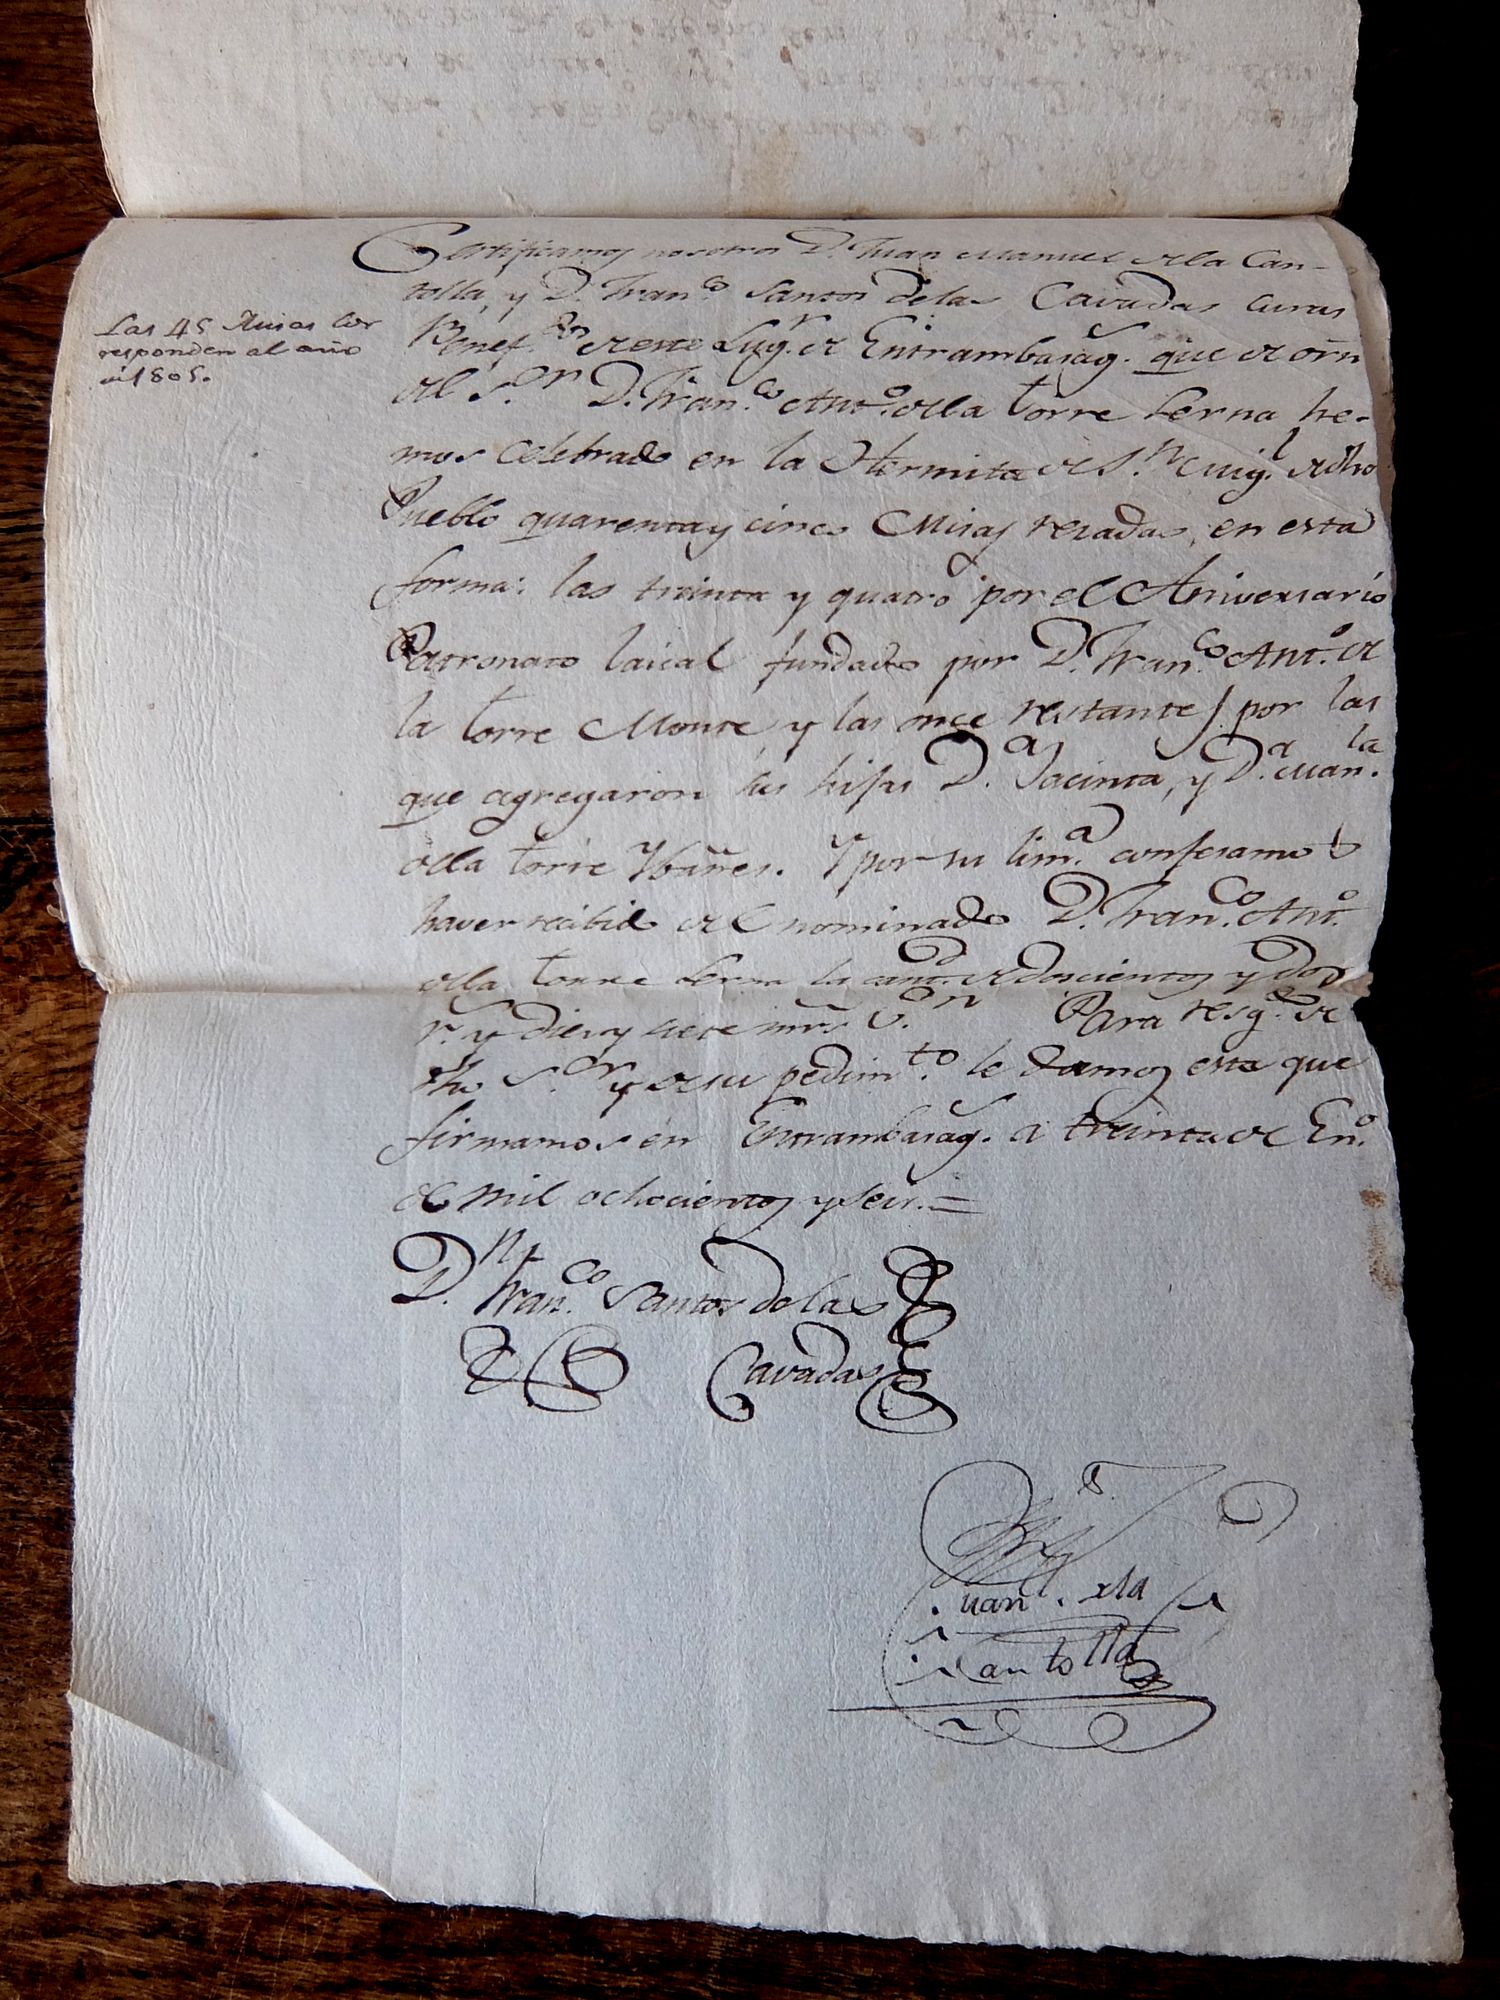 Las 45 Misas cor
responden al año
de 1805.
Certificamos nosotros D. Juan Manuel de la Can-
tolla, y D. Fran.co Santos de las Cavadas curas
Benef.dos de este Lug.r de Entrambasag.s que de orn
del S.or D. Fran.co Ant.o de la Torre Lerna he-
mos celebrado en la Hermita de S.n Mig.l de dho
Pueblo quarenta y cinco Misas resadas, en esta
forma: las treinta y quatro por el Aniversario
Patronato laical fundado por D. Fran.co Ant.o de
la Torre Monte, y las once restantes por las
que agregaron sus hijas D.a Jacinta, y D.a Man.la
de la Torre Ybañes. Y por su lim.a confesamos
haver recibido del nominado D. Fran.co Ant.o
de la Torre Lerna la cant.d de doscientos y dos
r.s y dies y siete mrs v.on Para resg.do de
dho S.or y de su pedim.to le damos esta que
firmamos en Entrambasag.s a treinta de En.o
de mil ochocientos y seis.=
D.n Fran.co Santos de las
Cavadas
Juan M. de la
Cantolla